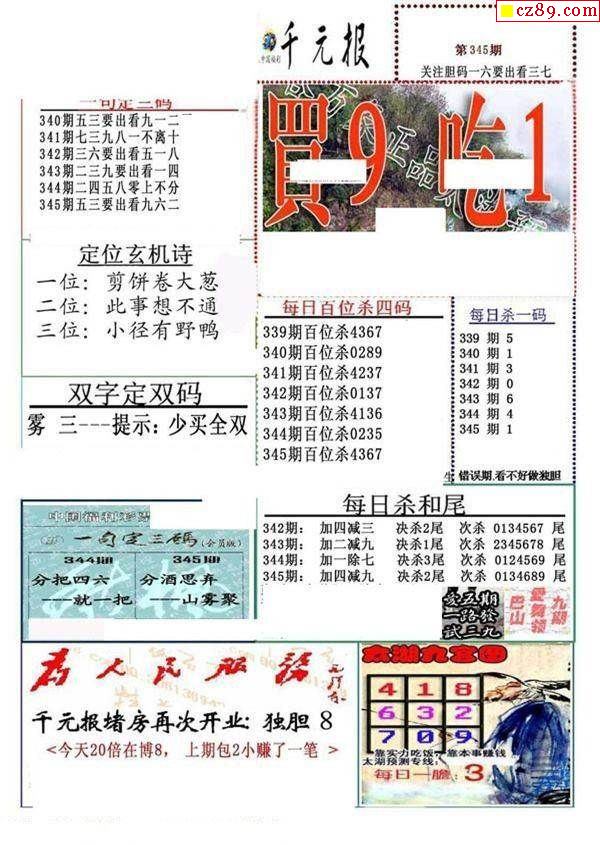 cz89.com
千元报
第345期
关注胆码一六要出看三七
一句定三码
340期五三要出看九一二
341期七三九八一不离十
342期三六要出看五一八
343期二三九要出看一四
344期二四五八零上不分
345期五三要出看九六二
買9 吃1
定位玄机诗
一位：剪饼卷大葱
二位：此事想不通
三位：小径有野鸭
双字定双码
雾 三---提示：少买全双
每日百位杀四码
339期百位杀4367
340期百位杀0289
341期百位杀4237
342期百位杀0137
343期百位杀4136
344期百位杀0235
345期百位杀4367
每日杀一码
339 期 5
340 期 1
341 期 3
342 期 0
343 期 6
344 期 4
345 期 1
错误期.看不好做独胆
每日杀和尾
342期： 加四减三 决杀2尾 次杀 0134567 尾
343期： 加二减九 决杀1尾 次杀 2345678 尾
344期： 加一除七 决杀3尾 次杀 0124569 尾
345期： 加四减九 决杀2尾 次杀 0134689 尾
中国福利彩票
一句定三码(会员版)
344期
分把四六
---就一把
345期
分酒思弃
---山雾聚
爱五期
一路发
试三九
为人民服务
千元报堵房再次开业：独胆 8
<今天20倍在博8， 上期包2小赚了一笔 >
太湖九宫图
4 1 8
6 3 2
7 0 9
靠实力吃饭，靠本事赚钱
太湖预测专线：
每日一胆：3